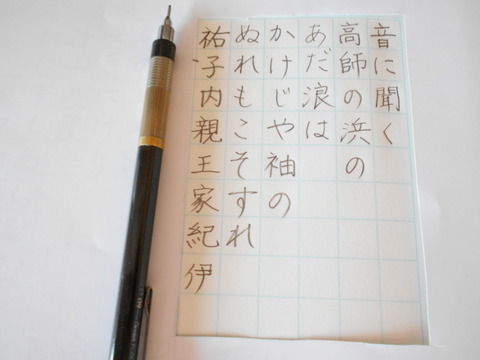 音に聞く
高師の浜の
あだ浪は
かけじや袖の
ぬれもこそすれ
祐子内親王家紀伊